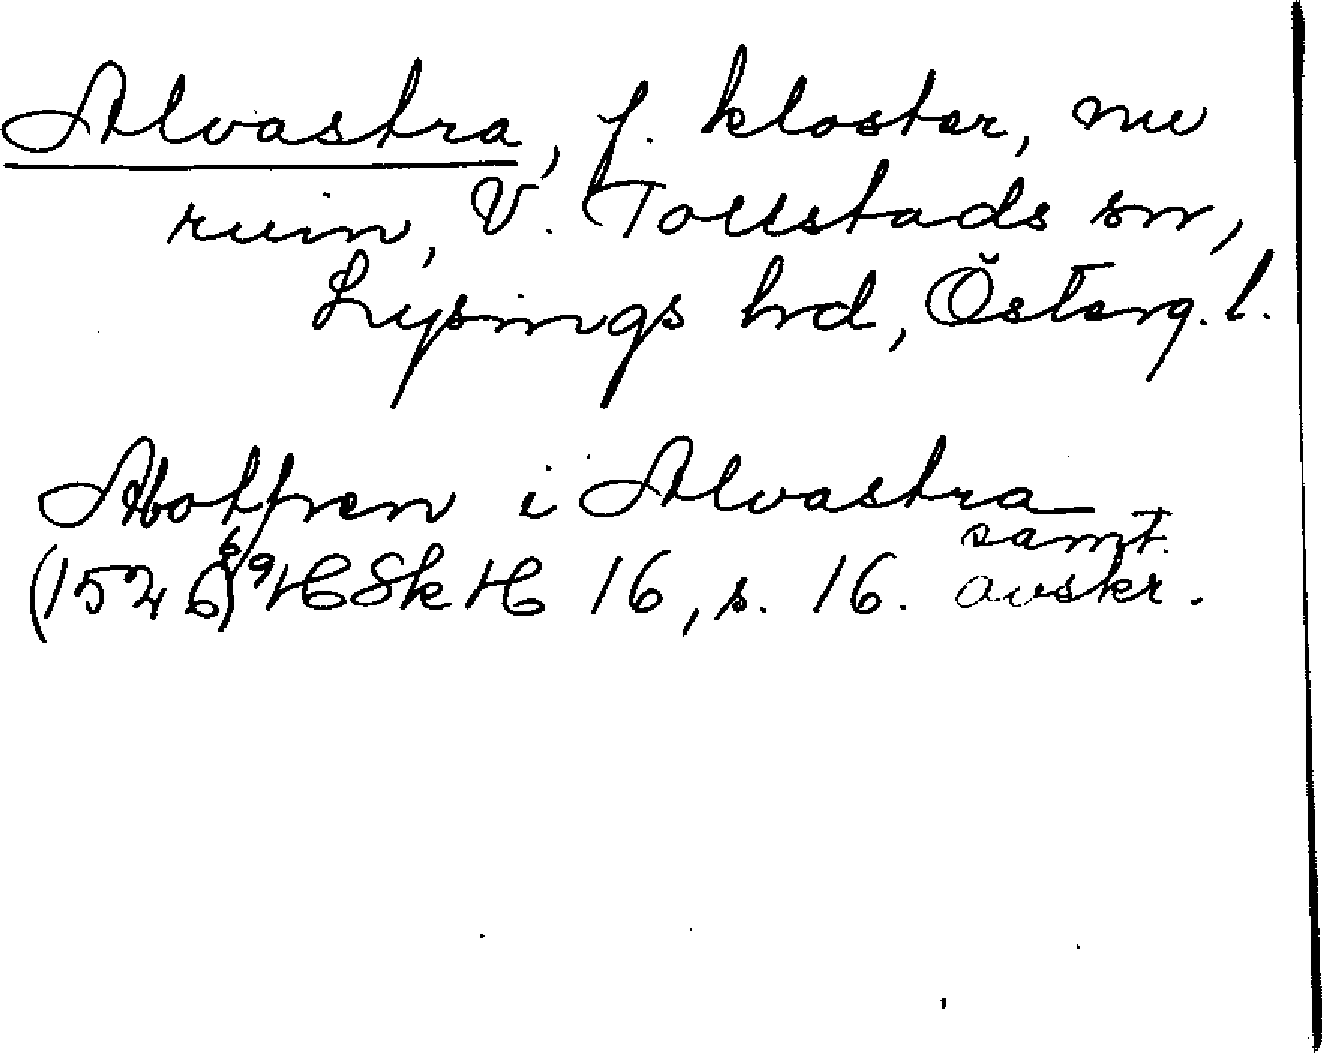 Alvastra, f. kloster, nu
ruin, V. Tollstads sn,
Lysings hd, Österg. l.
Abothen i Alvastra
samt.
(1526) HSkH 16, s. 16. avskr.